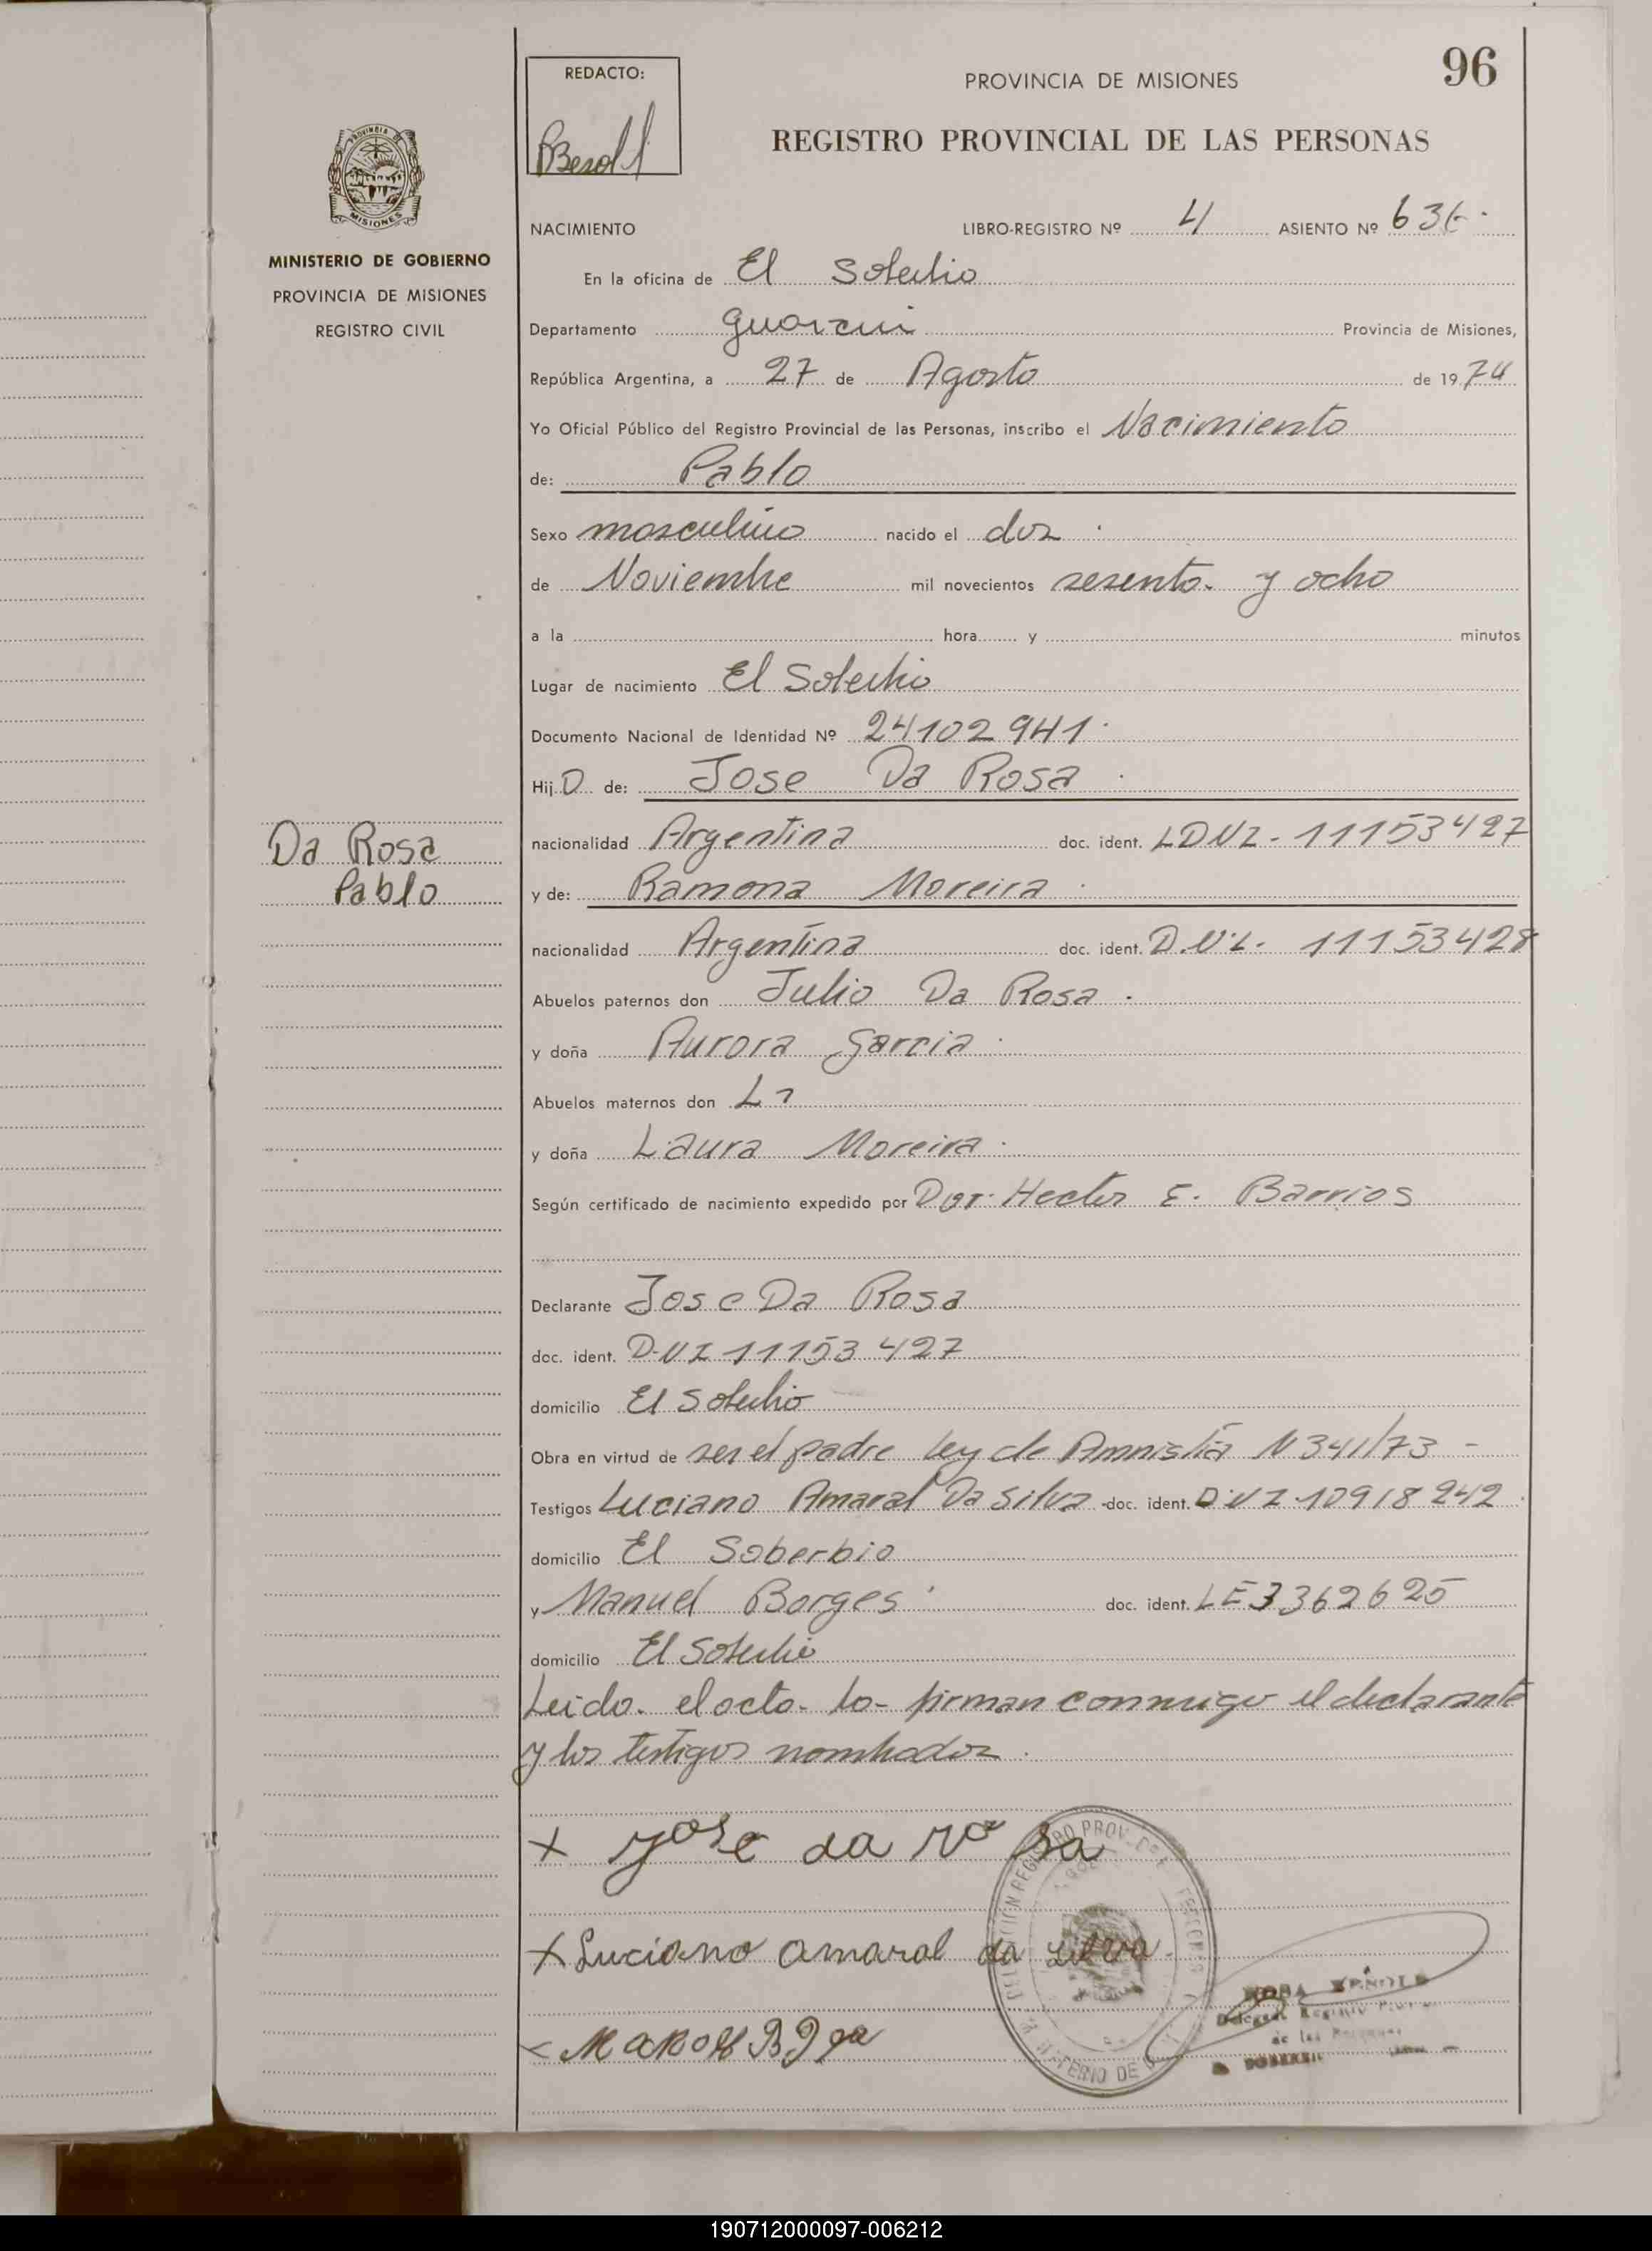 96
REDACTO:
PROVINCIA DE MISIONES
REGISTRO PROVINCIAL DE LAS PERSONAS
PROVINCIA DE
MISIONES
MINISTERIO DE GOBIERNO
PROVINCIA DE MISIONES
REGISTRO CIVIL
NACIMIENTO LIBRO-REGISTRO Nº 4 ASIENTO Nº 636
En la oficina de El Soberbio
Departamento Guarani Provincia de Misiones,
República Argentina, a 27 de Agosto de 1974
Yo Oficial Público del Registro Provincial de las Personas, inscribo el Nacimiento
de: Pablo
Sexo masculino nacido el dos
de Noviembre mil novecientos sesenta y ocho
a la hora y minutos
Lugar de nacimiento El Soberbio
Documento Nacional de Identidad Nº 24102941
Hijo de: Jose Da Rosa
Da Rosa
Pablo
nacionalidad Argentina doc. ident. 11153427
y de: Ramona Moreira
nacionalidad Argentina doc. ident. D.N.I. 11153428
Abuelos paternos don Julio Da Rosa
y doña Aurora Garcia
Abuelos maternos don
y doña Laura Moreira
Según certificado de nacimiento expedido por Hector E. Barrios
Declarante Jose Da Rosa
doc. ident. D.N.I 11153427
domicilio El Soberbio
Obra en virtud de ser el padre Ley de Amnistía N 341/73 -
Testigos Luciano Amaral Da Silva doc. ident. D.N.I 10918242
domicilio El Soberbio
y Manuel Borges doc. ident. LE 3362625
domicilio El Soberbio
Leido el acta lo firman conmigo el declarante
y los testigos nombrados
x jose da rosa
x Luciano amaral da silva
190712000097-006212